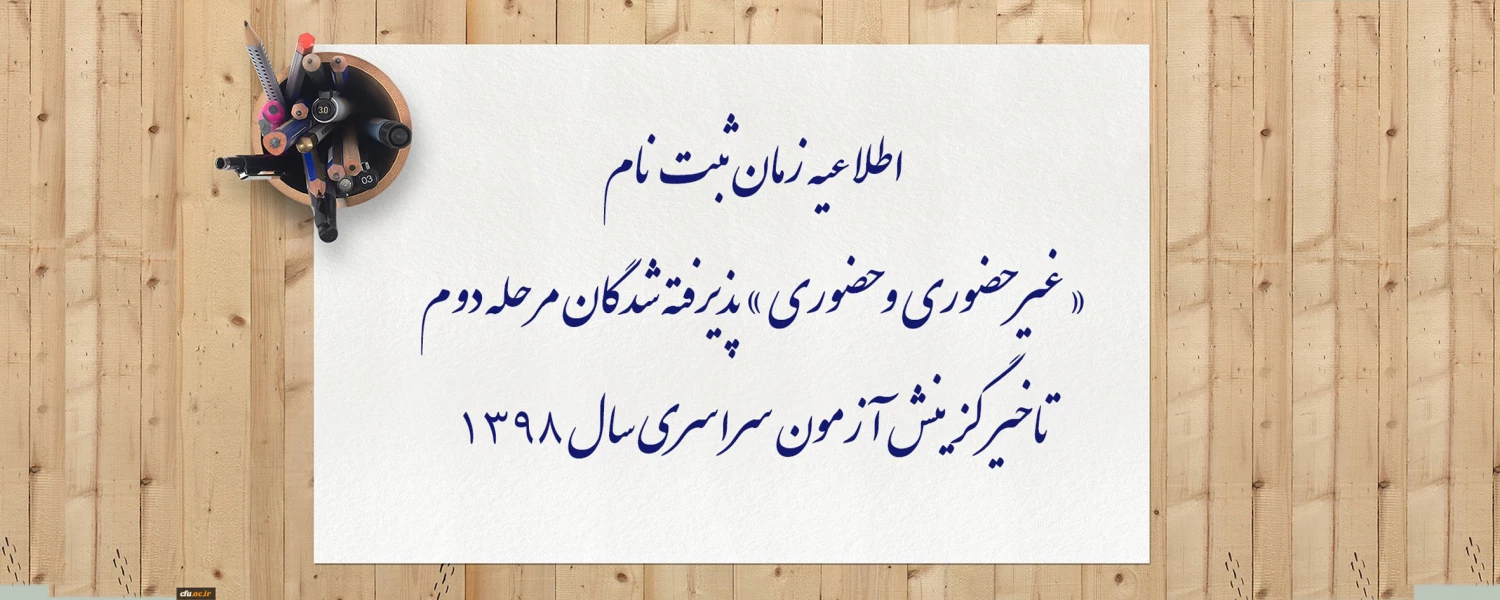 اطلاعیه زمان ثبت نام
« غیر حضوری و حضوری » پذیرفته شدگان مرحله دوم
تاخیر گزینش آزمون سراسری سال ۱۳۹۸
30
03
cfu.ac.ir